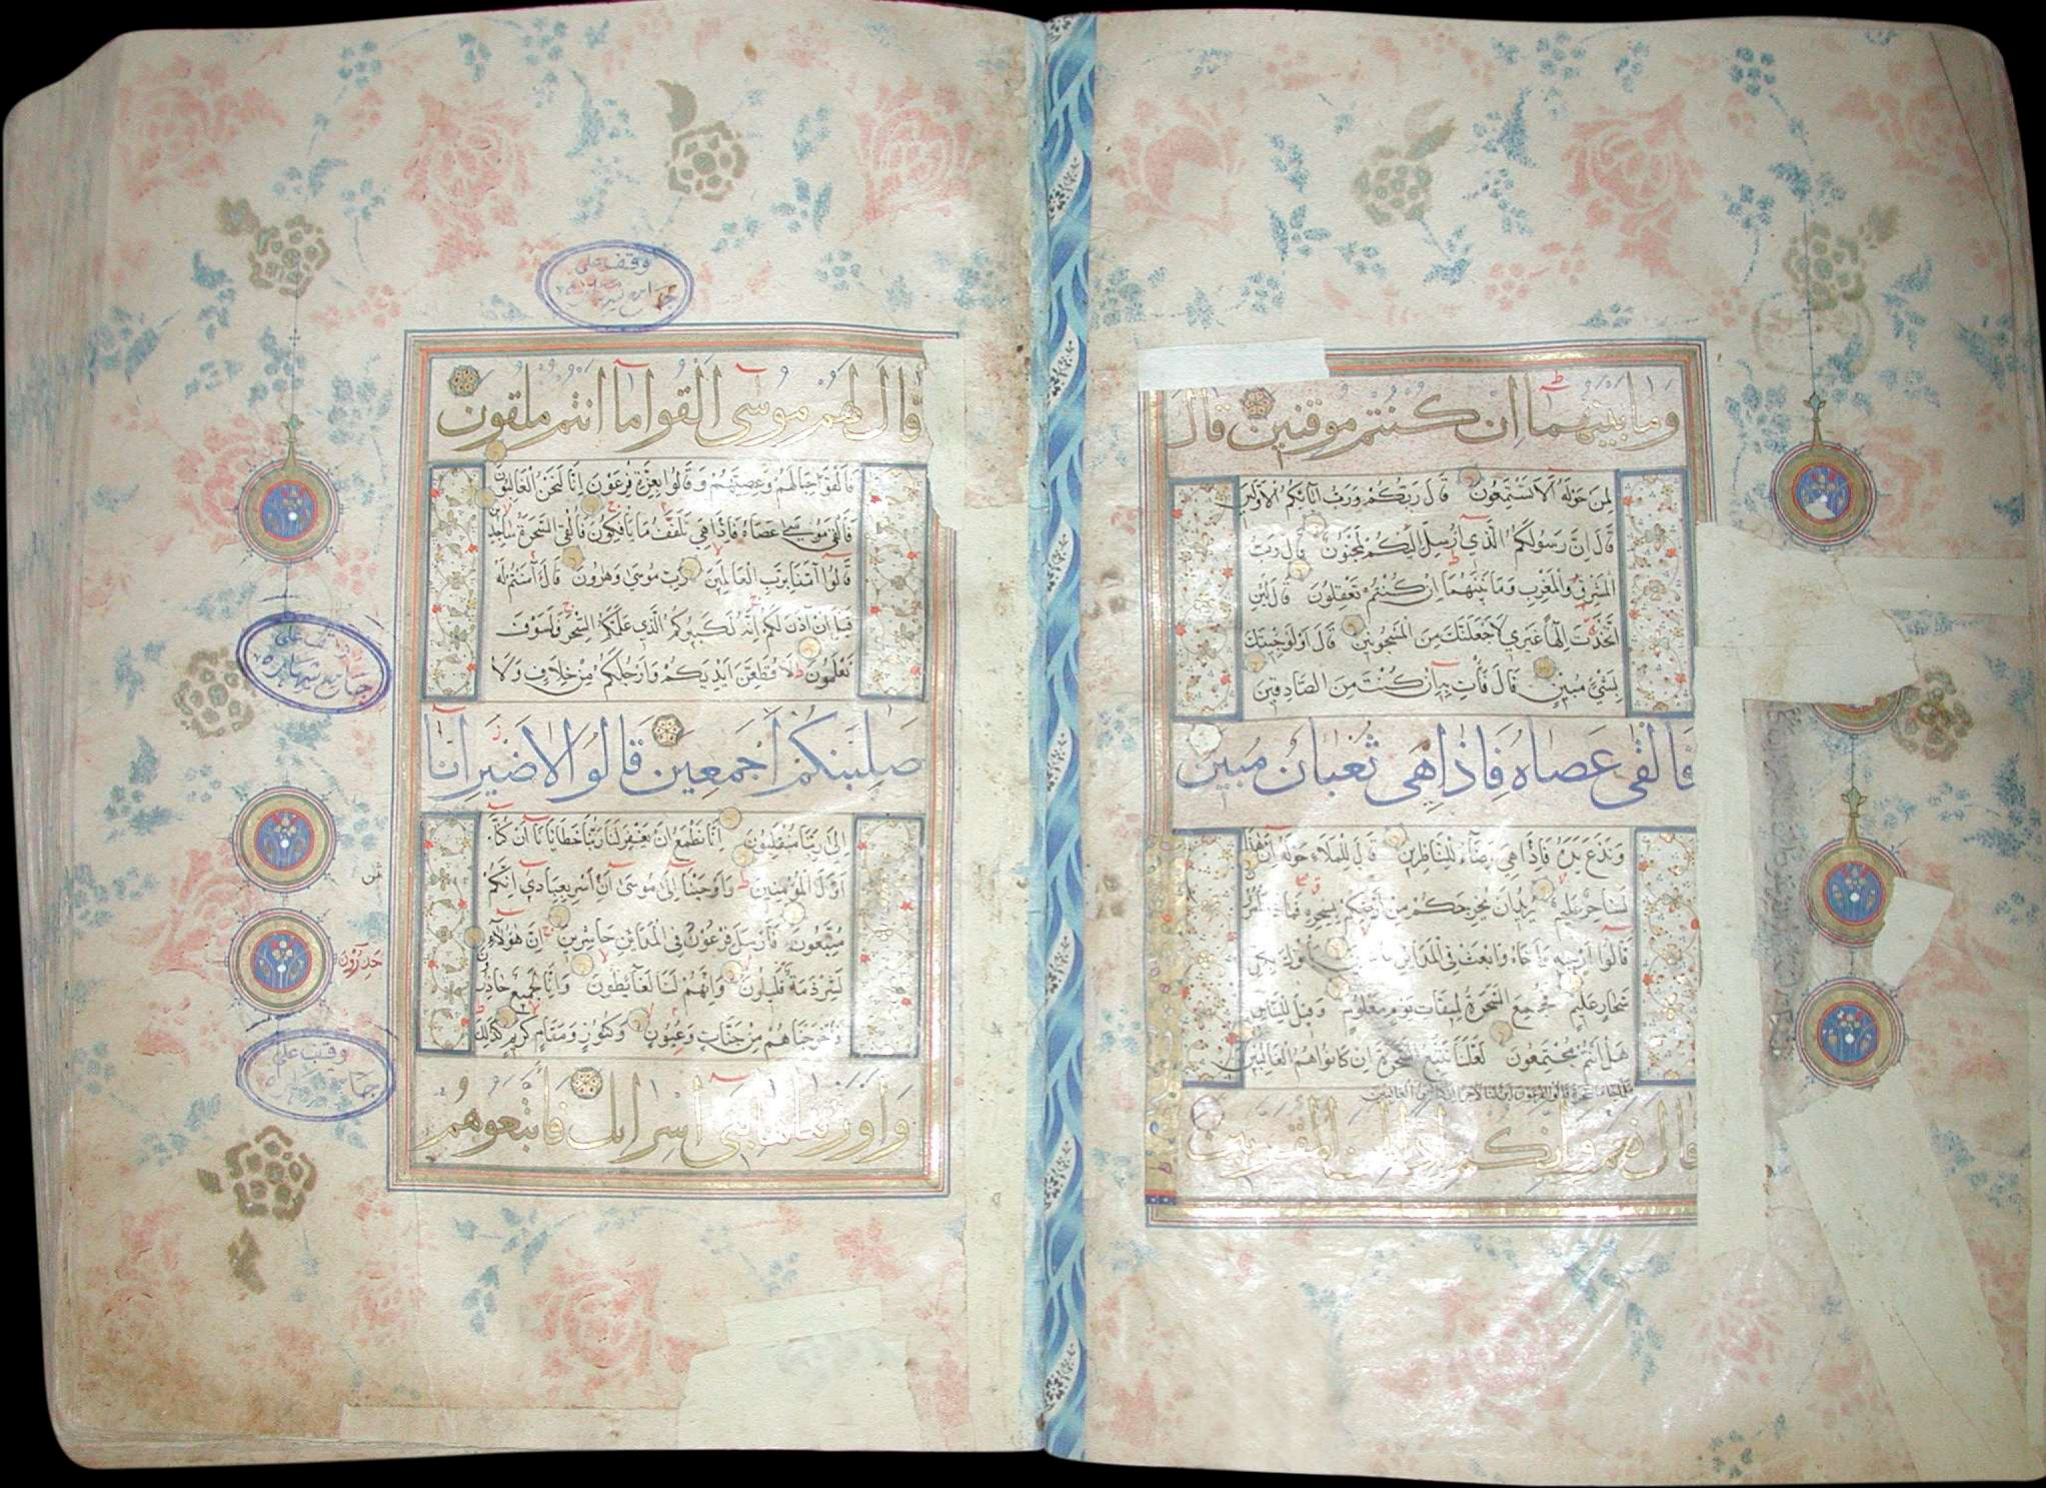 وما بينهما ان كنتم موقنين قال
لمن حوله الا تستمعون قال ربكم ورب آبائكم الاولين
قال ان رسولكم الذي ارسل اليكم لمجنون قال رب
المشرق والمغرب وما بينهما ان كنتم تعقلون قال لئن
اتخذت الها غيري لاجعلنك من المسجونين قال اولو جئتك
بشيء مبين قال فأت به ان كنت من الصادقين
فالقى عصاه فاذا هي ثعبان مبين
ونزع يده فاذا هي بيضاء للناظرين قال للملاء حوله ان هذا
لساحر عليم يريد ان يخرجكم من ارضكم بسحره فماذا تأمرون
قالوا ارجه واخاه وابعث في المداين حاشرين يأتوك بكل
سحار عليم فجمع السحرة لميقات يوم معلوم وقيل للناس
هل انتم مجتمعون لعلنا نتبع السحرة ان كانوا هم الغالبين
فلما جاء السحرة قالوا لفرعون ائن لنا لاجرا ان كنا نحن الغالبين
قال نعم وانكم اذا لمن المقربين
وقف على
قال لهم موسى القوا ما انتم ملقون
فالقوا حبالهم وعصيهم وقالوا بعزة فرعون انا لنحن الغالبون
فالقى موسى عصاه فاذا هي تلقف ما يأفكون فالقي السحرة ساجدين
قالوا آمنا برب العالمين رب موسى وهرون قال آمنتم له
قبل ان آذن لكم انه لكبيركم الذي علمكم السحر فلسوف
تعلمون لاقطعن ايديكم وارجلكم من خلاف ولا
صلبنكم اجمعين قالوا لا ضير انا
الى ربنا منقلبون انا نطمع ان يغفر لنا ربنا خطايانا ان كنا
اول المؤمنين واوحينا الى موسى ان اسر بعبادي انكم
متبعون فارسل فرعون في المداين حاشرين ان هؤلاء
لشرذمة قليلون وانهم لنا لغائظون وانا لجميع حاذرون
فاخرجناهم من جنات وعيون وكنوز ومقام كريم كذلك
واورثناها بني اسرائل فاتبعوهم
وقف على
جامع
حذرون
وقف على